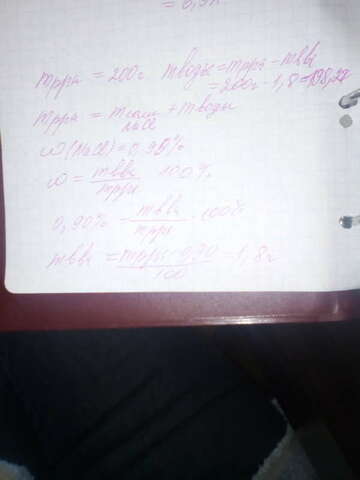 = 0,9%
mрра = 200г mводы = mрра - mвва
= 200г - 1,8 = 198,2г
mрра = mсоли + mводы
NaCl
ω(NaCl) = 0,90%
ω = mвва / mрра 100%
0,90% = mвва / mрра · 100%
mвва = mрра · 0,90 / 100 = 1,8г